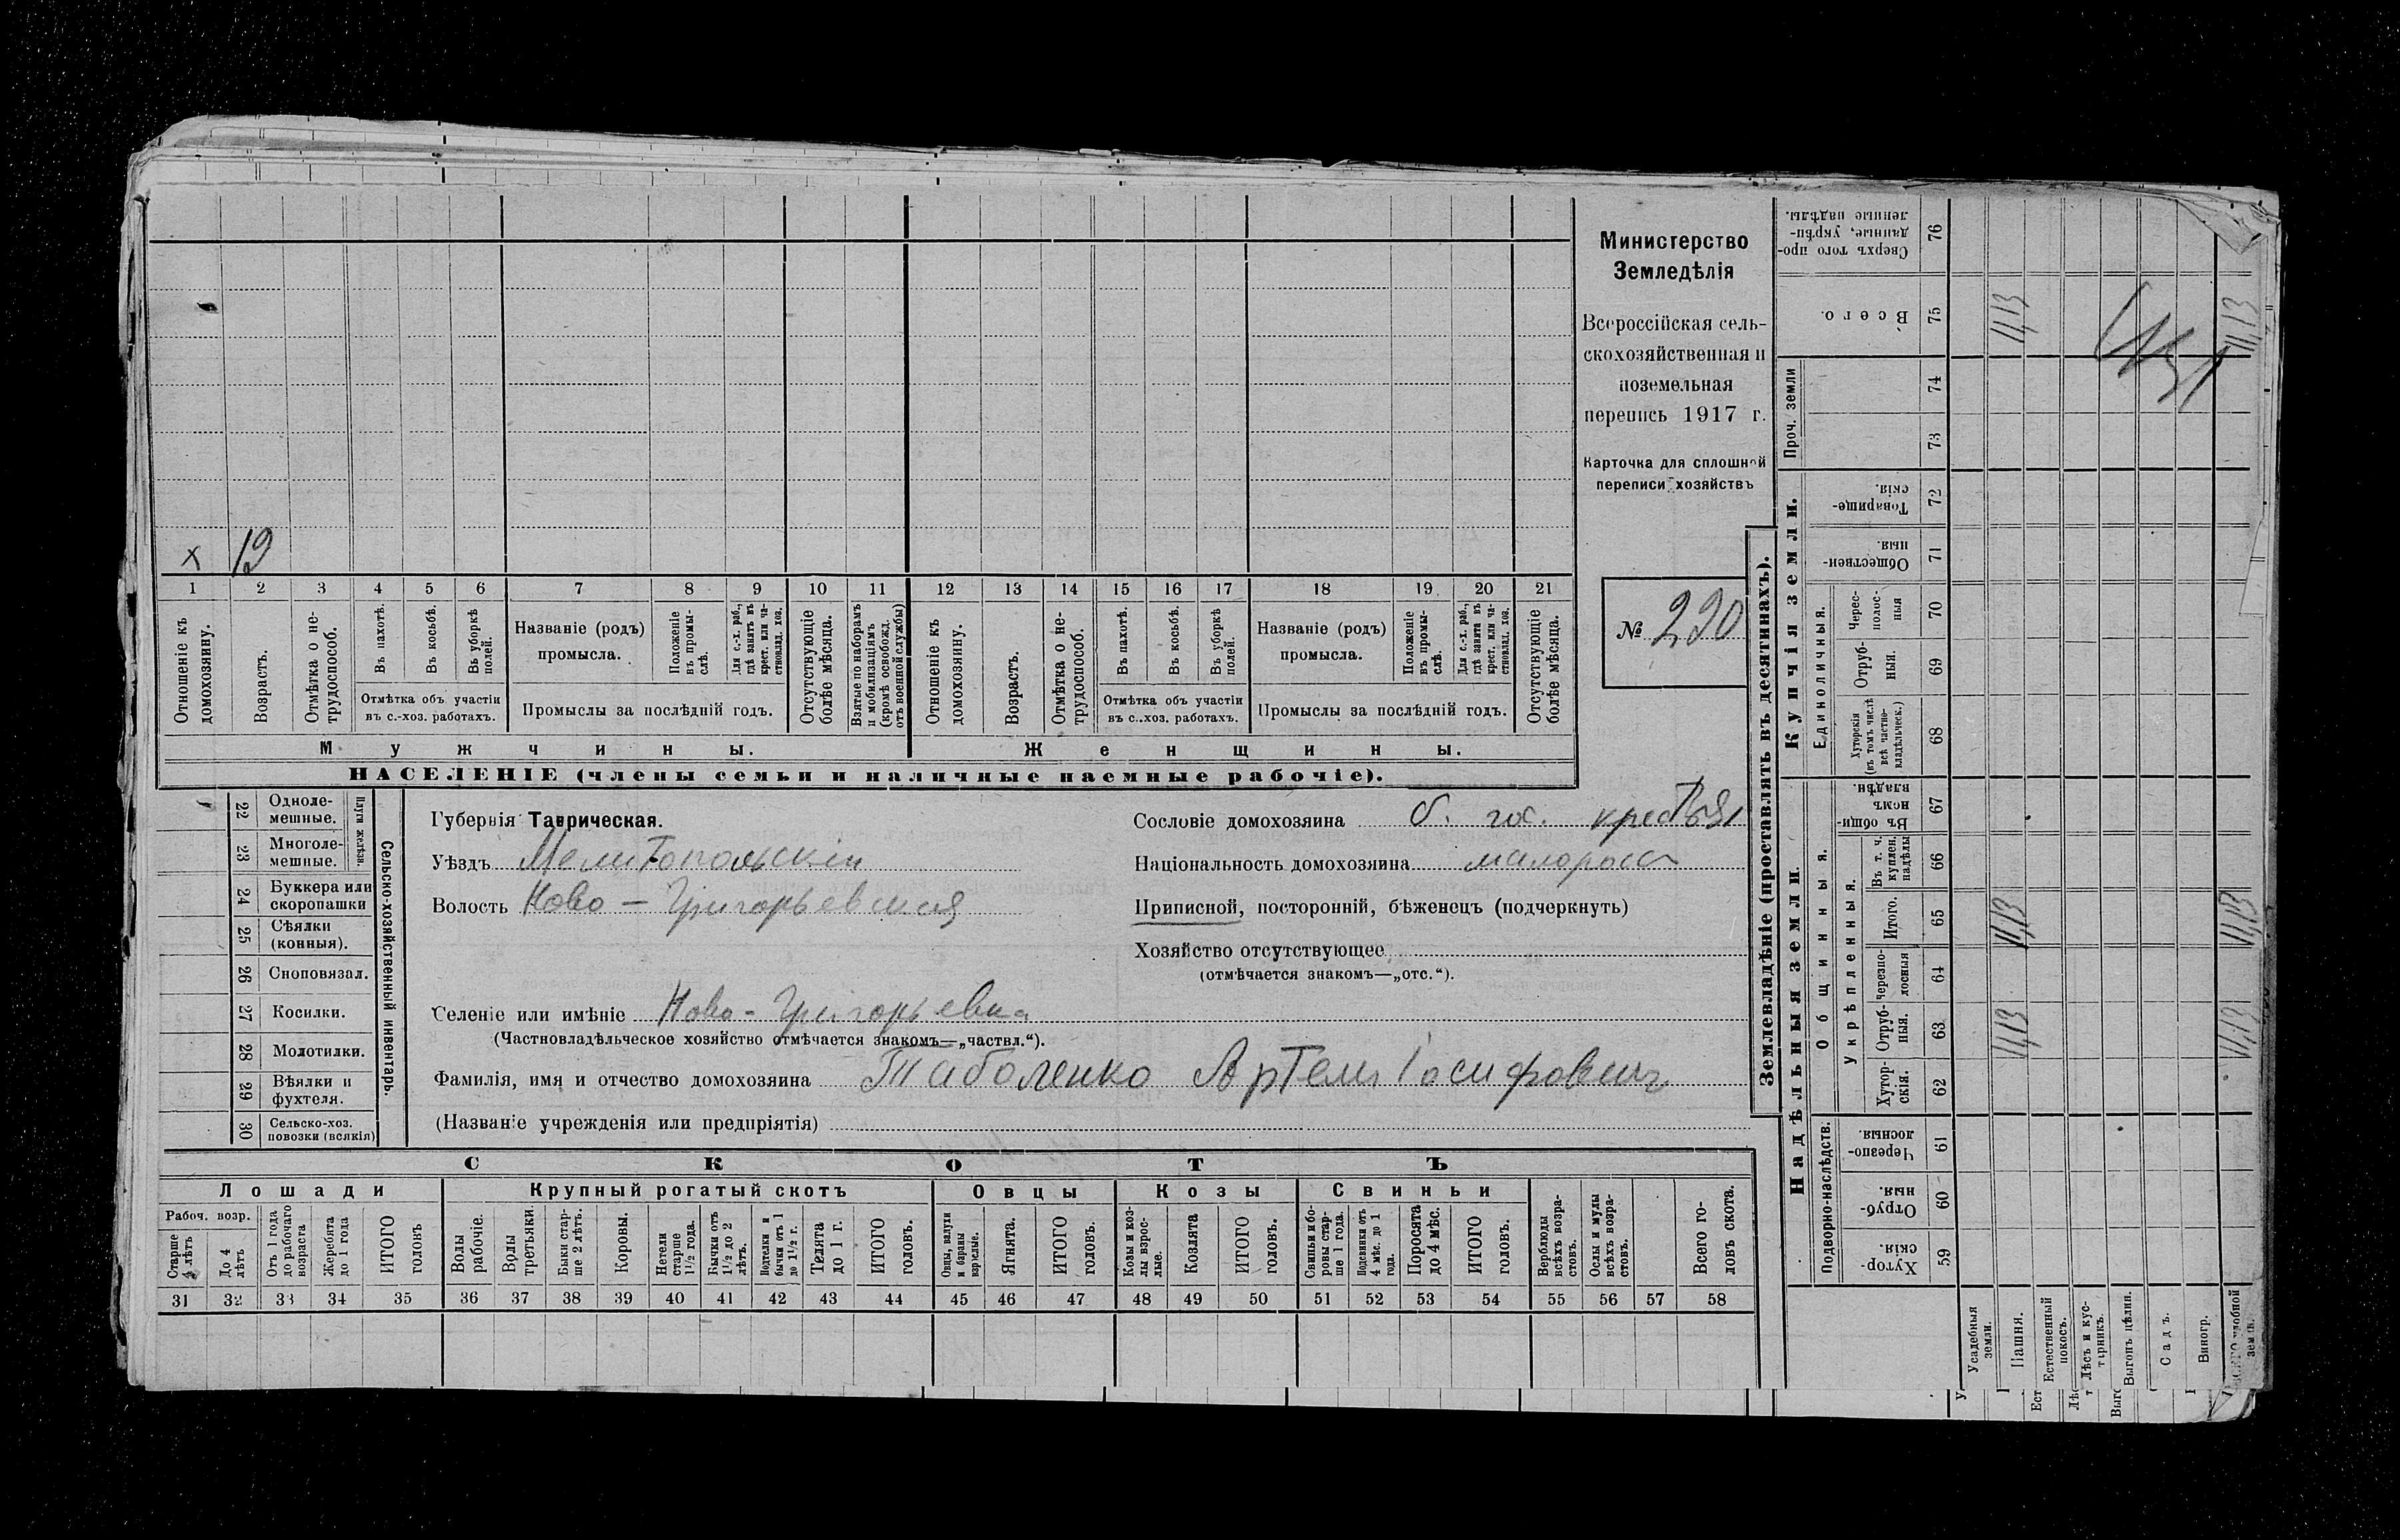 Министерство
Земледѣлія
Всероссійская сель-
скохозяйственная и
поземельная
перепись 1917 г.
Карточка для сплошной
переписи хозяйствъ
№ 220
х 12
1 2 3 4 5 6 7 8 9 10 11 12 13 14 15 16 17 18 19 20 21
Отношеніе къ домохозяину.
Возрастъ.
Отмѣтка о не-трудоспособ.
Въ пахотѣ.
Въ косьбѣ.
Въ уборкѣ полей.
Отмѣтка объ участіи
въ с.-хоз. работахъ.
Названіе (родъ)
промысла.
Положеніе въ промы-слѣ.
Для с.-х. раб., гдѣ занятъ въ крест. или ча-ствовлад. хоз.
Промыслы за послѣдній годъ.
Отсутствующіе болѣе мѣсяца.
Взятые по наборамъ и мобилизаціямъ (кромѣ освобожд. отъ военной службы)
Отношеніе къ домохозяину.
Возрастъ.
Отмѣтка о не-трудоспособ.
Въ пахотѣ.
Въ косьбѣ.
Въ уборкѣ полей.
Отмѣтка объ участіи
въ с..хоз. работахъ.
Названіе (родъ)
промысла.
Положеніе въ промы-слѣ.
Для с.-х. раб., гдѣ занята въ крест. или ча-ствовлад. хоз.
Промыслы за послѣдній годъ.
Отсутствующіе болѣе мѣсяца.
Мужчины. Женщины.
НАСЕЛЕНІЕ (члены семьи и наличные наемные рабочіе).
22 Одноле-мешные.
23 Многоле-мешные.
Плуги желѣзн.
24 Буккера или скоропашки
25 Сѣялки (конныя).
26 Сноповязал.
27 Косилки.
28 Молотилки.
29 Вѣялки и фухтеля.
30 Сельско-хоз. повозки (всякія)
Сельско-хозяйственный инвентарь.
Губернія Таврическая.
Уѣздъ Мелитопольскій
Волость Ново-Григорьевская
Селеніе или имѣніе Ново-Григорьевка
(Частновладѣльческое хозяйство отмѣчается знакомъ—„частвл.“).
Фамилія, имя и отчество домохозяина Таболенко Артем Іосифович
(Названіе учрежденія или предпріятія)
Сословіе домохозяина б. гос. крестьян
Національность домохозяина малоросс
Приписной, посторонній, бѣженецъ (подчеркнуть)
Хозяйство отсутствующее
(отмѣчается знакомъ—„отс.“).
СКОТЪ
Лошади Крупный рогатый скотъ Овцы Козы Свиньи
Рабоч. возр.
Старше 4 лѣтъ
До 4 лѣтъ
Отъ 1 года до рабочаго возраста
Жеребята до 1 года
ИТОГО головъ
Волы рабочіе.
Волы третьяки.
Быки стар-ше 2 лѣтъ.
Коровы.
Нетели старше 1½ года.
Бычки отъ 1½ до 2 лѣтъ.
Подтелки и бычки отъ 1 до 1½ г.
Телята до 1 г.
ИТОГО головъ.
Овцы, валухи и бараны взрослые.
Ягнята.
ИТОГО головъ.
Козы и коз-лы взрос-лые.
Козлята
ИТОГО головъ.
Свиньи и бо-ровы стар-ше 1 года.
Подсвинки отъ 4 мѣс. до 1 года.
Поросята до 4 мѣс.
ИТОГО головъ.
Верблюды всѣхъ возра-стовъ.
Ослы и мулы всѣхъ возра-стовъ.
Всего го-ловъ скота.
31 32 33 34 35 36 37 38 39 40 41 42 43 44 45 46 47 48 49 50 51 52 53 54 55 56 57 58
Землевладѣніе (проставлять въ десятинахъ).
Купчія земли.
Надѣльныя земли.
Сверхъ того про-данные, укрѣп-ленные надѣлы. 76
Всего. 75 11,13 11,13
Проч. земли 74 73
Товарище-скія. 72
Обществен-ныя. 71
Единоличныя.
Черес-полос-ныя 70
Отруб-ныя. 69
Хуторскія (въ томъ числѣ всѣ частно-владѣльческ.) 68
Общинныя.
Въ общин-номъ владѣн. 67
Укрѣпленныя.
Въ т. ч. куплен. надѣлы 66
Итого. 65 11,13 11,13
Черезпо-лосныя 64
Отруб-ныя. 63 11,13 11,13
Хутор-скія. 62
Подворно-наслѣдств.
Черезпо-лосныя. 61
Отруб-ныя. 60
Хутор-скія. 59
Усадебныя земли.
Пашня.
Естественный покосъ.
Лѣсъ и кус-тарникъ.
Выгонъ цѣлин.
Садъ.
Виногр.